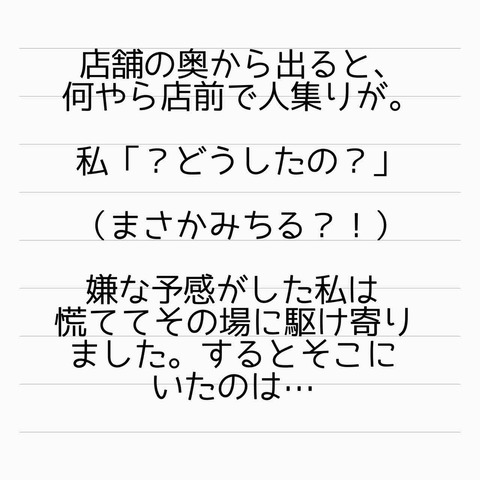 店舗の奥から出ると、
何やら店前で人集りが。
私「？どうしたの？」
（まさかみちる？！）
嫌な予感がした私は
慌ててその場に駆け寄り
ました。するとそこに
いたのは…